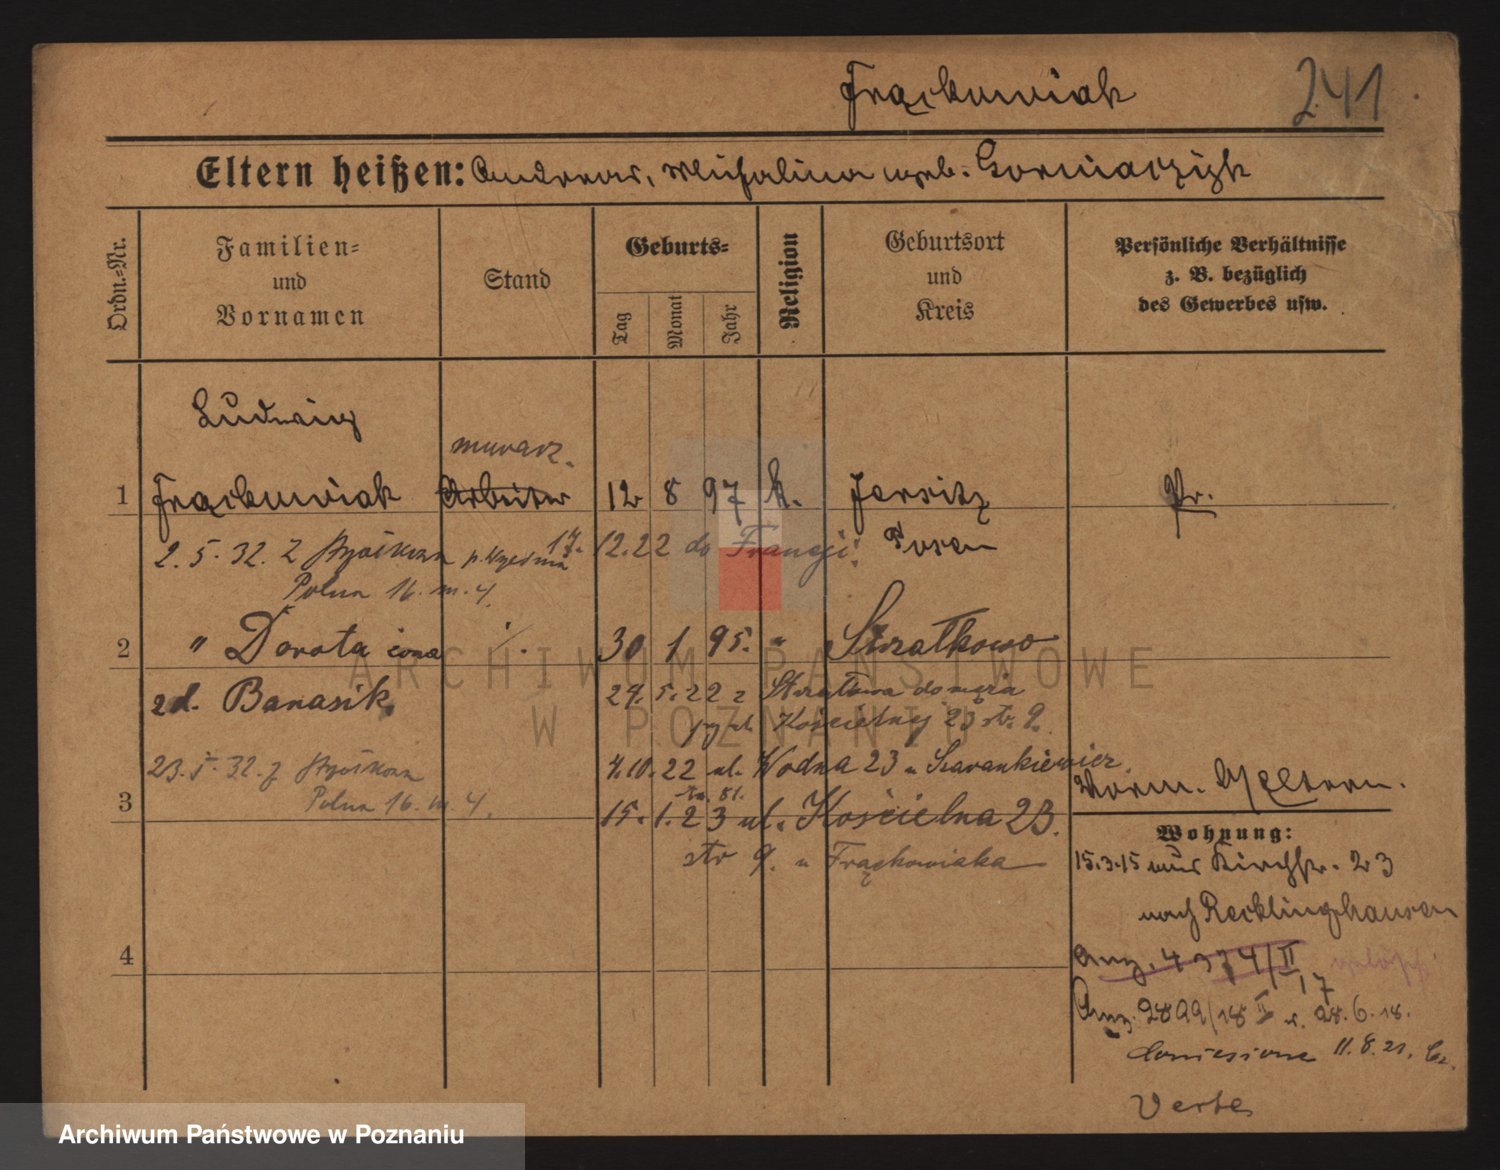 Frąckowiak 241
Eltern heißen: Andreas, Michalina geb.
Ordn.=Nr.
Familien=
und
Vornamen
Stand
Geburts=
Tag
Monat
Jahr
Religion
Geburtsort
und
Kreis
Persönliche Verhältnisse
z. B. bezüglich
des Gewerbes usw.
Ludwig
murarz.
1 Frąckowiak Arbeiter 12 8 97 k. Jersitz Pr.
2.5.32. z 17. 12.22 do Francji Posen
Polna 16. m. 4.
2 " Dorota żona 30 1 95. " Strzałkowo
zd. Banasik 29.5.22 z do męża
Kościelny 23 str. 9.
23.5.32. z 4.10.22 ul. Wodna 23 u Szarankiewicz
Polna 16. m 4.
Vorm. Eltern.
3 15. 1. 23 ul. Kościelna 23.
Wohnung:
str 9. u Frąckowiaka
15.3.15 aus Kirchstr. 23
nach Recklinghausen
4
Anz. 4374/II 17 gelöscht
Anz. 2899/18 II v. 28.6.18.
11.8.21.
Verte
ARCHIWUM PAŃSTWOWE
W POZNANIU
Archiwum Państwowe w Poznaniu